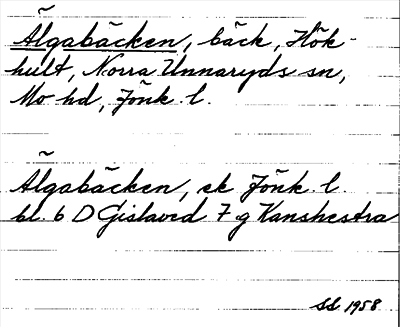 Älgabäcken, bäck, Hök-
hult, Norra Unnaryds sn,
Mo hd, Jönk. l.
Älgabäcken, ek Jönk. l.
bl. 6 D Gislaved 7 g Kanshestra
SS 1958